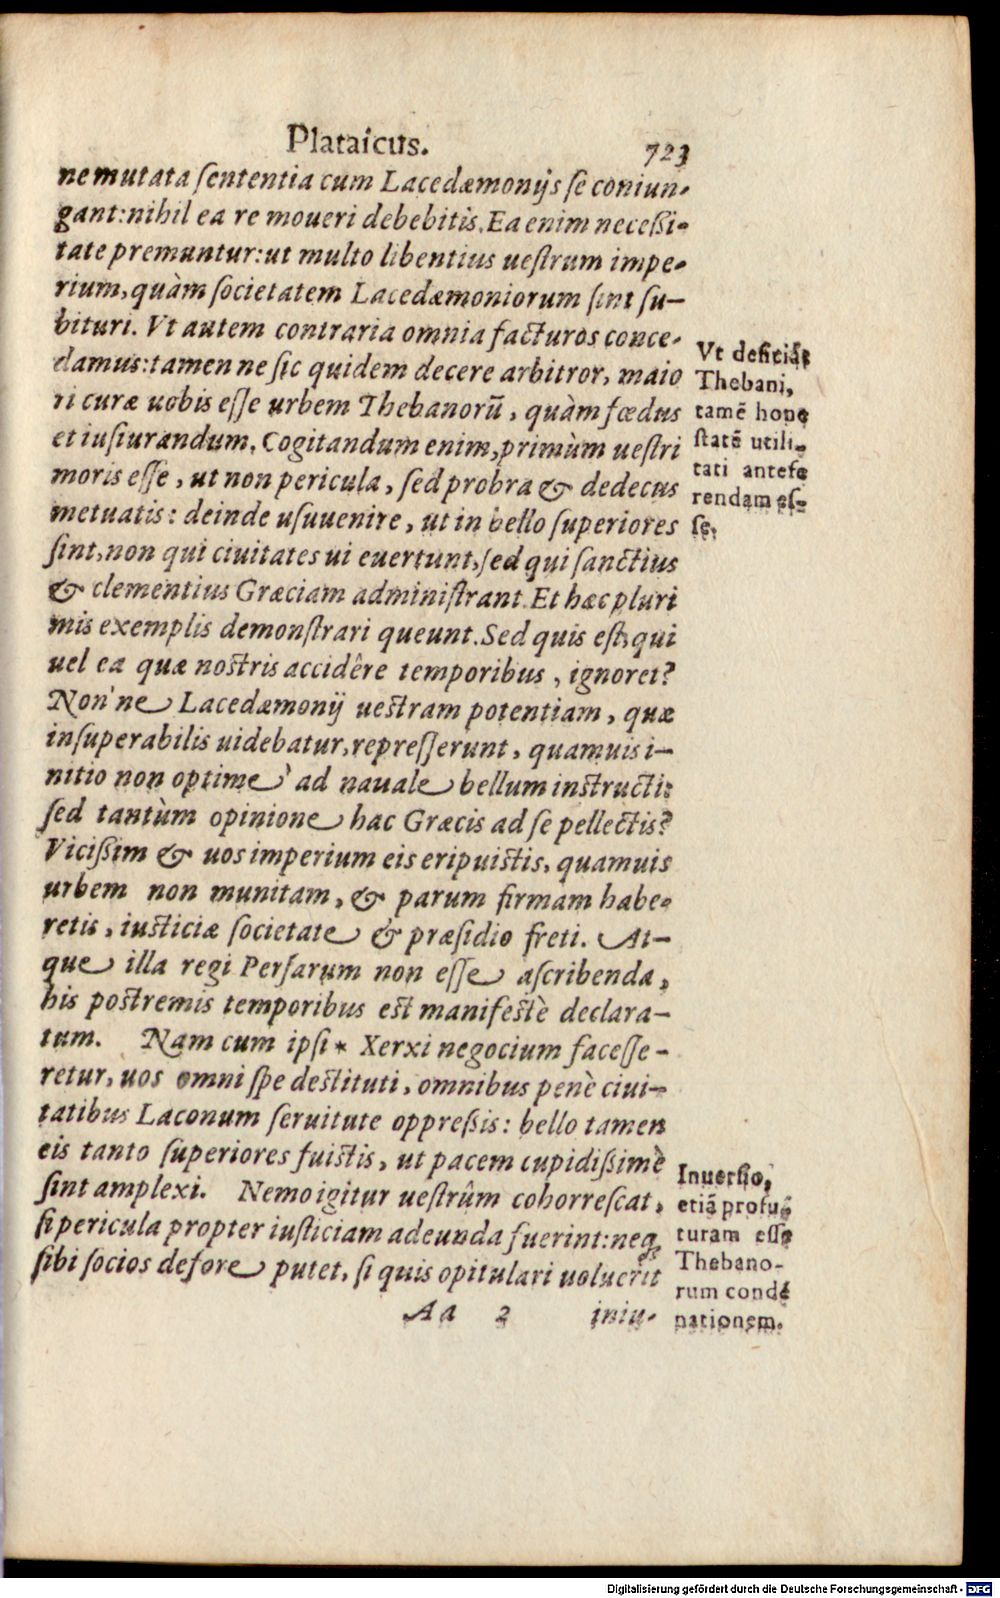 Plataicus. 723
ne mutata ſententia cum Lacedæmonijs ſe coniun-
gant: nihil ea re moueri debebitis. Ea enim neceßi-
tate premuntur: ut multo libentius ueſtrum impe-
rium, quàm ſocietatem Lacedæmoniorum ſint ſu-
bituri. Vt autem contraria omnia facturos conce-
damus: tamen ne ſic quidem decere arbitror, maio
ri curæ uobis eſſe urbem Thebanorū, quàm fœdus
et iuſiurandum. Cogitandum enim, primùm ueſtri
moris eſſe, ut non pericula, ſed probra & dedecus
metuatis: deinde uſuuenire, ut in bello ſuperiores
ſint, non qui ciuitates ui euertunt, ſed qui ſanctius
& clementius Græciam adminiſtrant. Et hæc pluri
mis exemplis demonſtrari queunt. Sed quis eſt, qui
uel ea quæ noſtris accidêre temporibus, ignoret?
Non'ne Lacedæmonij ueſtram potentiam, quæ
inſuperabilis uidebatur, repreſſerunt, quamuis i-
nitio non optime ad nauale bellum inſtructi:
ſed tantùm opinione hac Græcis ad ſe pellectis?
Vicißim & uos imperium eis eripuiſtis, quamuis
urbem non munitam, & parum firmam habe-
retis, iuſticiæ ſocietate & præſidio freti. At-
que illa regi Perſarum non eſſe aſcribenda,
his poſtremis temporibus eſt manifeſtè declara-
tum. Nam cum ipſi * Xerxi negocium faceſſe-
retur, uos omni ſpe deſtituti, omnibus penè ciui-
tatibus Laconum ſeruitute oppreßis: bello tamen
eis tanto ſuperiores fuiſtis, ut pacem cupidißimè
ſint amplexi. Nemo igitur ueſtrûm cohorreſcat,
ſi pericula propter iuſticiam adeunda fuerint: neq́;
ſibi ſocios defore putet, ſi quis opitulari uoluerit
Aa 2 iniu-
Vt deficiāt
Thebani,
tamē hone
ſtatē utili-
tati antefe
rendam eſ-
ſe.
Inuerſio,
etiā profu
turam eſſe
Thebano-
rum condē
nationem.
Digitalisierung gefördert durch die Deutsche Forschungsgemeinschaft - DFG